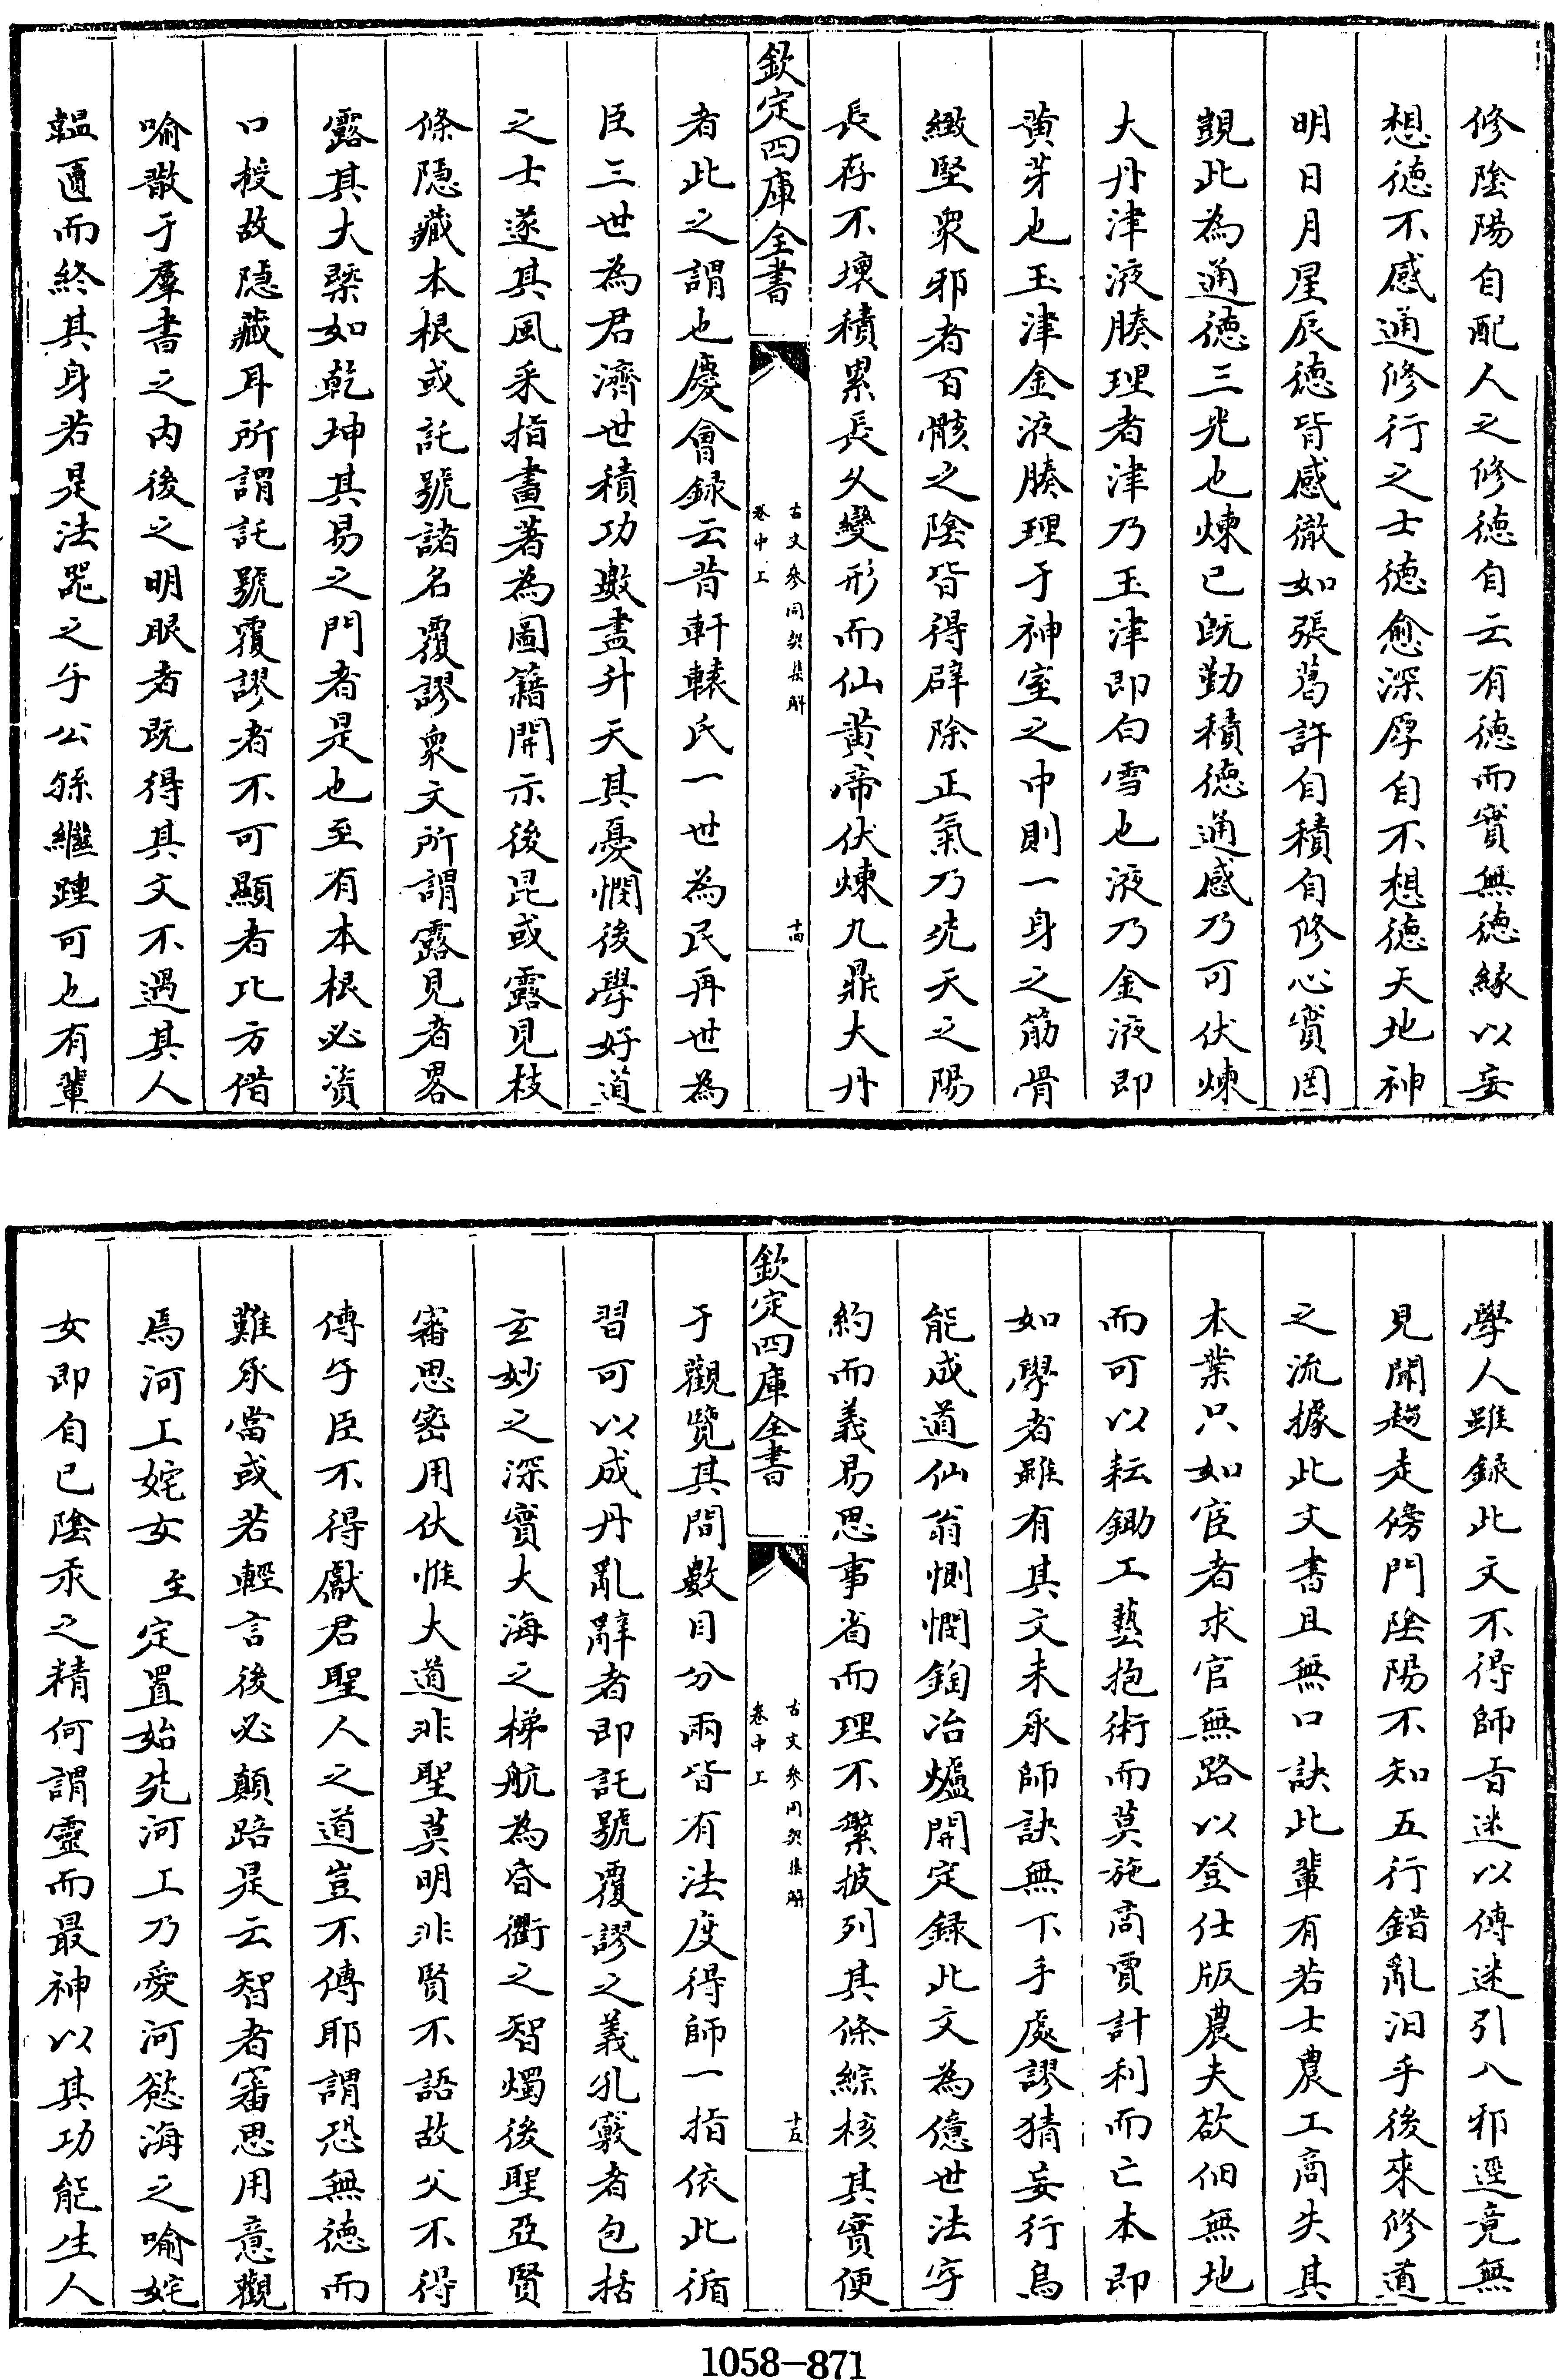 修陰陽自配人之修德自云有德而實無德緣以妄
想德不感通修行之士德愈深厚自不想德天地神
明日月星辰德皆感徹如張葛許自積自修心實罔
覬此為通德三光也煉已既勤積德通感乃可伏煉
大丹津液腠理者津乃玉津即白雪也液乃金液即
黄芽也玉津金液腠理于神室之中則一身之筋骨
緻堅衆邪者百骸之陰皆得辟除正氣乃先天之陽
長存不壞積累長久變形而仙黄帝伏煉九鼎大丹
欽定四庫全書
古文參同契集解
卷中上
十四
者此之謂也慶會録云昔軒轅氏一世為民再世為
臣三世為君濟世積功數盡升天其憂憫後學好道
之士遂其風采指畫著為圖籍開示後昆或露見枝
條隠藏本根或託號諸名覆謬衆文所謂露見者畧
露其大槩如乾坤其易之門者是也至有本根必資
口授故隠藏耳所謂託號覆謬者不可顯者比方借
喻散于羣書之内後之明眼者既得其文不遇其人
韞匵而終其身若是法器之子公孫繼踵可也有輩
學人雖録此文不得師旨迷以傳迷引入邪逕竟無
見聞趨走傍門陰陽不知五行錯亂汨乎後來修道
之流據此文書且無口訣此輩有若士農工商失其
本業只如宦者求官無路以登仕版農夫欲佃無地
而可以耘鋤工藝抱術而莫施商賈計利而亡本即
如學者雖有其文未承師訣無下手處謬猜妄行烏
能成道仙翁惻憫鋾冶爐開定録此文為億世法字
約而義易思事省而理不繁披列其條綜核其實便
欽定四庫全書
古文參同契集解
卷中上
十五
于觀覽其間數目分兩皆有法度得師一指依此循
習可以成丹亂辭者即託號覆謬之義孔竅者包括
玄妙之深實大海之梯航為昏衢之智燭後聖亞賢
審思密用伏惟大道非聖莫明非賢不語故父不得
傳子臣不得獻君聖人之道豈不傳耶謂恐無德而
難承當或若輕言後必顛踣是云智者審思用意觀
焉河上姹女至定置始先河上乃愛河慾海之喻姹
女即自己陰汞之精何謂靈而最神以其功能生人
1058-871